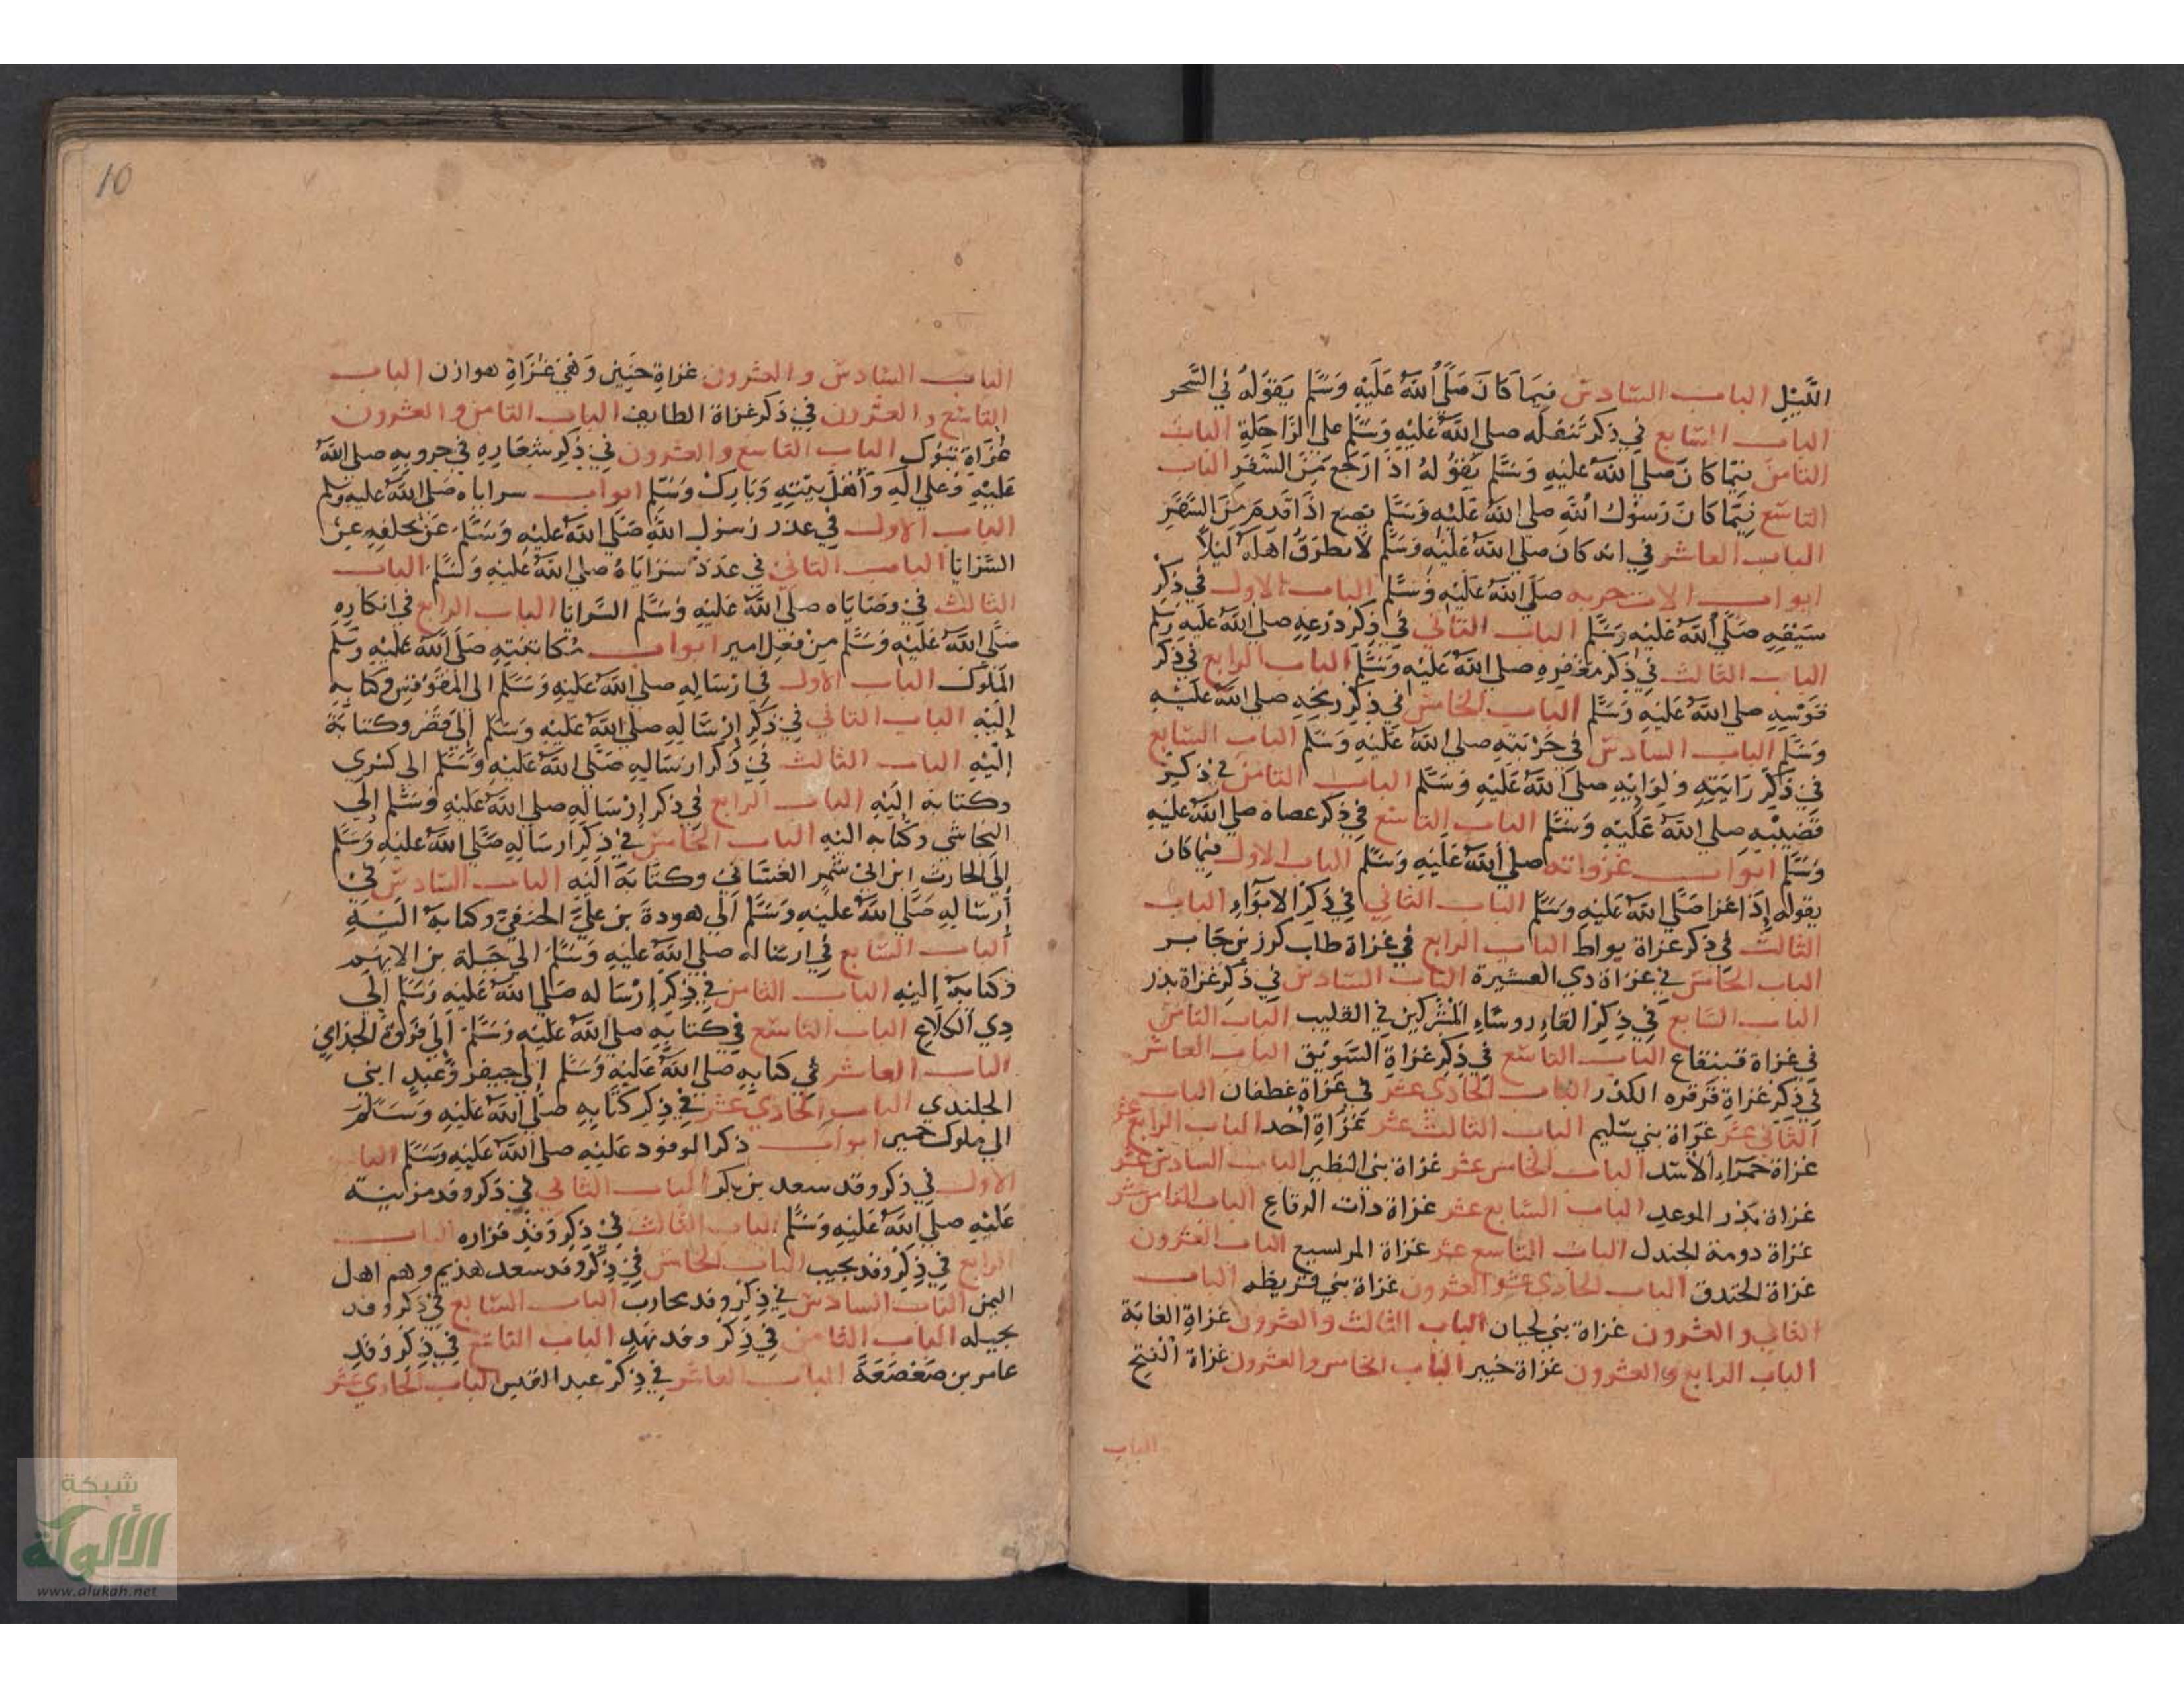 الليل الباب السادس فيما كان صلى الله عليه وسلم يقوله في السحر
الباب السابع في ذكر تنفله صلى الله عليه وسلم على الراحلة الباب
الثامن فيما كان صلى الله عليه وسلم يقوله اذا رجع من السفر الباب
التاسع فيما كان رسول الله صلى الله عليه وسلم يصنع اذا قدم من السفر
الباب العاشر في انه كان صلى الله عليه وسلم لا يطرق اهله ليلا
ابواب الات حربه صلى الله عليه وسلم الباب الاول في ذكر
سيفه صلى الله عليه وسلم الباب الثاني في ذكر درعه صلى الله عليه وسلم
الباب الثالث في ذكر مغفره صلى الله عليه وسلم الباب الرابع في ذكر
قوسه صلى الله عليه وسلم الباب الخامس في ذكر رمحه صلى الله عليه
وسلم الباب السادس في حربته صلى الله عليه وسلم الباب السابع
في ذكر رايته ولوايه صلى الله عليه وسلم الباب الثامن في ذكر
قضيبه صلى الله عليه وسلم الباب التاسع في ذكر عصاه صلى الله عليه
وسلم ابواب غزواته صلى الله عليه وسلم الباب الاول فيما كان
يقوله إذا غزا صلى الله عليه وسلم الباب الثاني في ذكر الابواء الباب
الثالث في ذكر غزاة بواط الباب الرابع في غزاة طلب كرز بن جابر
الباب الخامس في غزاة ذي العشيرة الباب السادس في ذكر غزاة بدر
الباب السابع في ذكر القاء روساء المشركين في القليب الباب الثامن
في غزاة قينقاع الباب التاسع في ذكر غزاة السويق الباب العاشر
في ذكر غزاة قرقره الكدر الباب الحادي عشر في غزاة غطفان الباب
الثاني عشر غزاة بني سليم الباب الثالث عشر غزاة أحد الباب الرابع عشر
غزاة حمراء الأسد الباب الخامس عشر غزاة بني النظير الباب السادس عشر
غزاة بدر الموعد الباب السابع عشر غزاة ذات الرقاع الباب الثامن عشر
غزاة دومة الجندل الباب التاسع عشر غزاة المرسيع الباب العشرون
غزاة الخندق الباب الحادي والعشرون غزاة بني قريظه الباب
الثاني والعشرون غزاة بني لحيان الباب الثالث والعشرون غزاة الغابة
الباب الرابع والعشرون غزاة خيبر الباب الخامس والعشرون غزاة الفتح
الباب
10
الباب السادس والعشرون غزاة حنين وهي غزاة هوازن الباب
التاسع والعشرون في ذكر غزاة الطايف الباب الثامن والعشرون
غزاة تبوك الباب التاسع والعشرون في ذكر شعاره في حروبه صلى الله
عليه وعلى اله وأهل بيته وبارك وسلم ابواب سراياه صلى الله عليه وسلم
الباب الاول في عذر رسول الله صلى الله عليه وسلم عن تخلفه عن
السرايا الباب الثاني في عدد سراياه صلى الله عليه وسلم الباب
الثالث في وصاياه صلى الله عليه وسلم السرايا الباب الرابع في انكاره
صلى الله عليه وسلم من فعل امير ابواب مكاتبته صلى الله عليه وسلم
الملوك الباب الاول في ارساله صلى الله عليه وسلم الى المقوقس وكتابه
إليه الباب الثاني في ذكر إرساله صلى الله عليه وسلم إلى قيصر وكتابة
إليه الباب الثالث في ذكر ارساله صلى الله عليه وسلم الى كسرى
وكتابه إليه الباب الرابع في ذكر إرساله صلى الله عليه وسلم إلى
النجاشي وكتابه اليه الباب الخامس في ذكر ارساله صلى الله عليه وسلم
إلى الحارث ابن ابي شمر الغساني وكتابة اليه الباب السادس في
إرساله صلى الله عليه وسلم الى هودة بن علي الحنفي وكتابة اليه
الباب السابع في ارساله صلى الله عليه وسلم الى جبلة بن الايهم
وكتابة إليه الباب الثامن في ذكر إرساله صلى الله عليه وسلم إلى
ذي الكلاع الباب التاسع في كتابه صلى الله عليه وسلم إلى فروة الجذامي
الباب العاشر في كتابه صلى الله عليه وسلم إلى جيفر وعبد ابني
الجلندي الباب الحادي عشر في ذكر كتابه صلى الله عليه وسلم
الى ملوك حمير ابواب ذكر الوفود عليه صلى الله عليه وسلم الباب
الاول في ذكر وفد سعد بن بكر الباب الثاني في ذكر وفد مزينة
عليه صلى الله عليه وسلم الباب الثالث في ذكر وفد فزاره الباب
الرابع في ذكر وفد تجيب الباب الخامس في ذكر وفد سعد هذيم وهم اهل
اليمن الباب السادس في ذكر وفد محارب الباب السابع في ذكر وفد
بجيله الباب الثامن في ذكر وفد نهد الباب التاسع في ذكر وفد
عامر بن صعصعة الباب العاشر في ذكر عبد القيس الباب الحادي عشر
شبكة
الألوكة
www.alukah.net